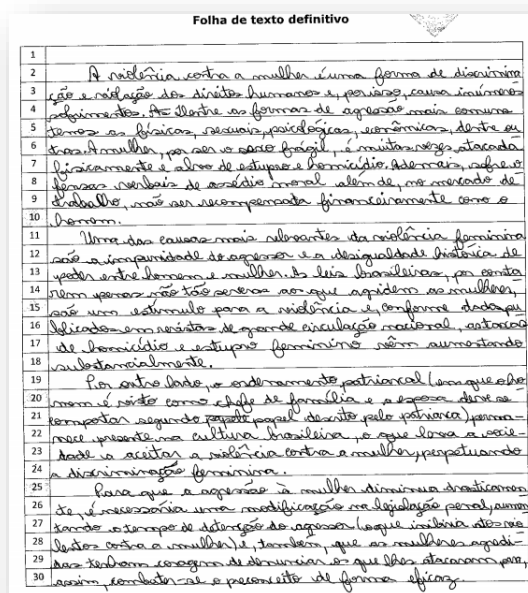 Folha de texto definitivo
1
2 A violência contra a mulher é uma forma de discrimina
3 ção e violação dos direitos humanos e, por isso, causa inúmeros
4 sofrimentos. As dentre as formas de agressão mais comuns
5 temos as físicas, sexuais, psicológicas, econômicas, dentre ou
6 tras. A mulher, por ser o sexo frágil, é muitas vezes, atacada
7 fisicamente e alvo de estupro e homicídio. Ademais, sofre o
8 fensas verbais de assédio moral além de, no mercado de
9 trabalho, não ser recompensada financeiramente como o
10 homem.
11 Uma das causas mais relevantes da violência feminina
12 são a impunidade do agressor e a desigualdade histórica de
13 poder entre homem e mulher. As leis brasileiras, por conta
14 rem penas não tão severas aos que agridem as mulheres,
15 são um estimulo para a violência e, conforme dados pu
16 blicados em revistas de grande circulação nacional, as taxas
17 de homicídio e estupro feminino vêm aumentando
18 substancialmente.
19 Por outro lado, o ordenamento patriarcal (em que o ho
20 mem é visto como chefe de família e a esposa deve se
21 comportar segundo papel descrito pelo patriarca) perma-
22 nece presente na cultura brasileira, o que leva a socie
23 dade a aceitar a violência contra a mulher, perpetuando
24 a discriminação feminina.
25 Para que a agressão à mulher diminua drasticamen
26 te, é necessária uma modificação na legislação penal, aumen
27 tando o tempo de detenção do agressor (o que inibiria atos vio
28 lentos contra a mulher) e, também, que as mulheres agredi-
29 das tenham coragem de denunciar os que lhes atacaram para,
30 assim, combater-se o preconceito de forma eficaz.